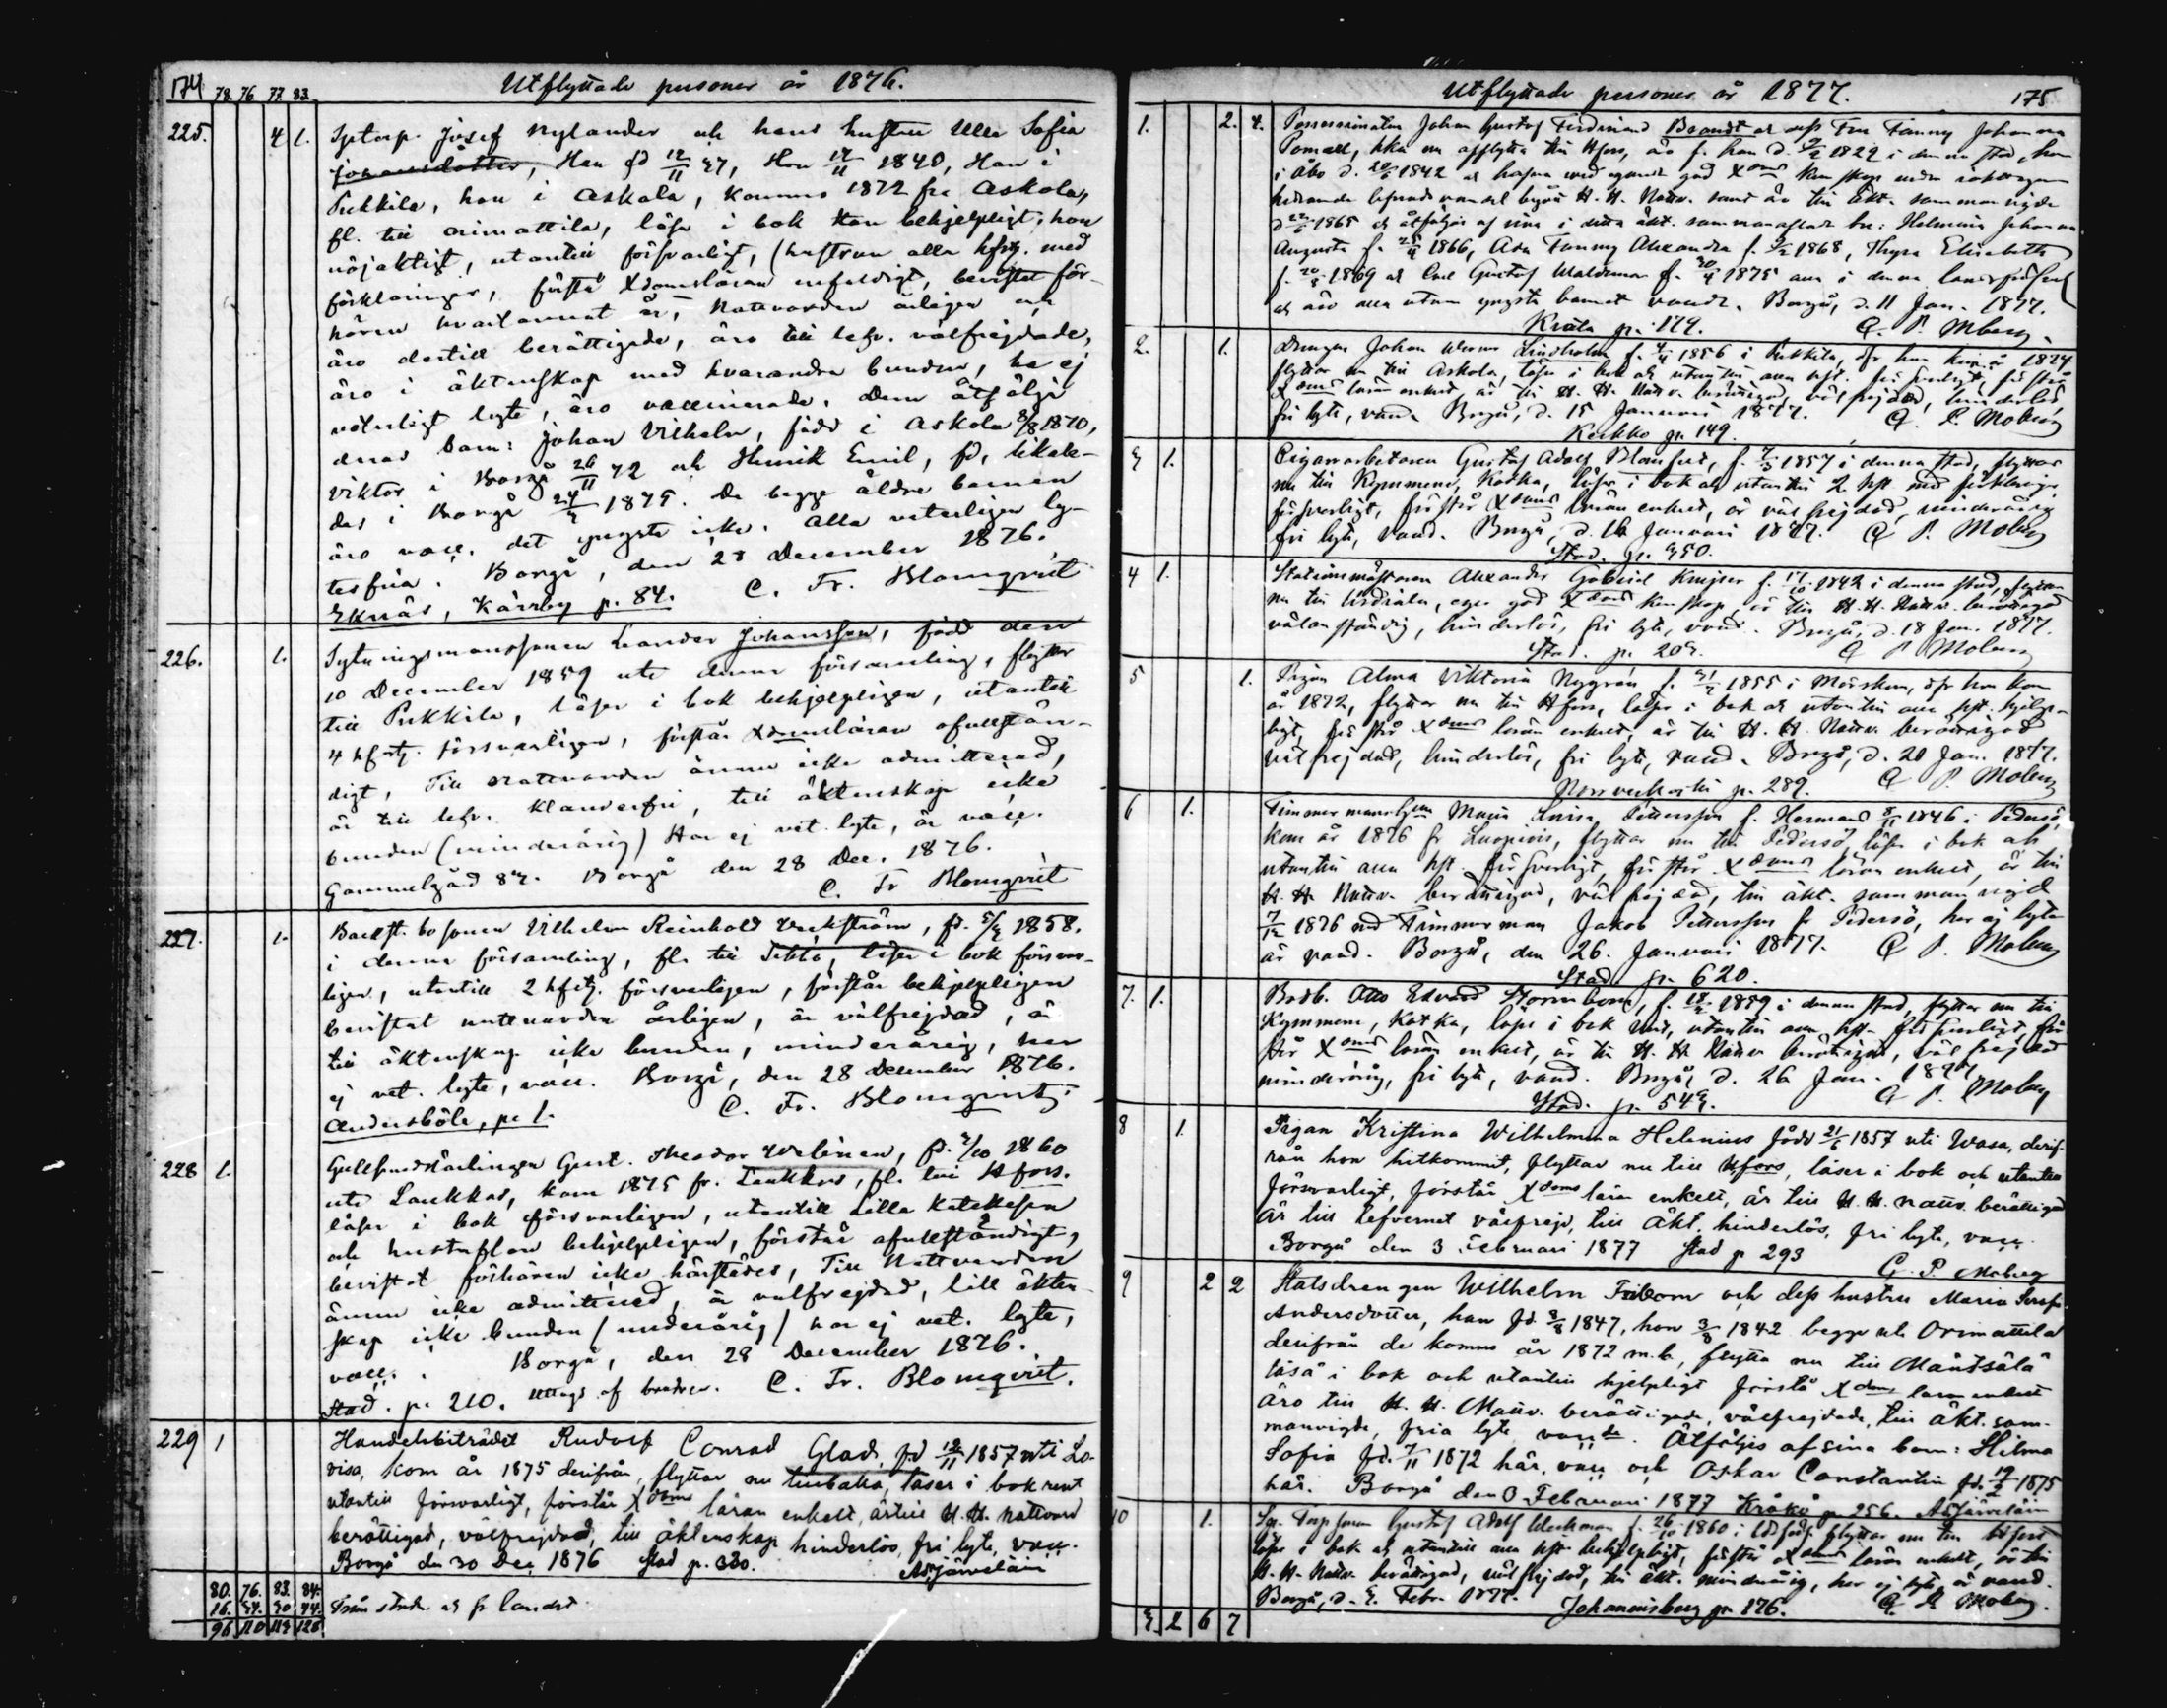 174 78. 76. 77. 83. Utflyttade personer år 1876.
225. 4 1. Sytorp. Josef Nylander och hans hustru Ulla Sofia
Johansdotter, Han fd 12/11 37, Hon 1840, Han i
Pukkila, hon i Askola, komna 1872 fr. Askola,
fl. till Orimattila, läsa i bok han behjelpligt, hon
nöjaktigt, utantill försvarligt, (hustrun alla hfstg. med
förklaringar, förstå Xdomsläran enfaldigt, bevistat för-
hören hvartannat år, Nattvarden årligen och
äro dertill berättigade, äro till lefv. välfrejdade,
äro i äktenskap med hvarandra bundna, ha ej
veterligt lyte, äro vaccinerade. Dem åtfölja
deras barn: Johan Vilhelm, född i Askola 1870,
Viktor i Borgå 26/11 72 och Henrik Emil, fd, likale-
des i Borgå 1875. De begge äldre barnen
äro vacc. det yngsta icke. Alla veterligen ly-
tesfria. Borgå, den 28 December 1876.
Eknäs, Kärrby p. 84. C. Fr. Blomqvist
226. 1. Sytningsmanssonen Leander Johansson, född den
10 December 1859 uti denna församling, flyttar
till Pukkila, läser i bok behjelpligen, utantill
4 hfstg. försvarligen, förstår Xdomsläran ofullstän-
digt, Till Nattvarden ännu icke admitterad,
är till lefv. klanderfri, till äktenskap icke
bunden (minderårig) Har ej vet. lyte, är vacc.
Gammelgård 87. Borgå den 28 Dec. 1876.
C. Fr Blomqvist
227. 1. Backst. bosonen Vilhelm Reinhold Veckström, fd. 1858.
i denna församling, fl. till Sibbo, läser i bok försvar-
ligen, utantill 2 hfstg. försvarligen, förstår behjelpligen
bevistat nattvarden årligen, är välfrejdad, är
till äktenskap icke bunden, minderårig, har
ej vet. lyte, vacc. Borgå, den 28 December 1876.
Andersböle, p. 1. C. Fr. Blomqvist
228 1. Gullsmedslärlingen Gust. Theodor Welenius, fd. 2/10 1860
uti Laukkas, kom 1875 fr. Laukkas, fl. till Hfors.
läser i bok försvarligen, utantill Lilla Katekesen
och hustaflan behjelpligen, förstår ofullständigt,
bevistat förhören icke härstädes, Till Nattvarden
ännu icke admitterad, är välfrejdad, till äkten-
skap icke bunden (minderårig) har ej vet. lyte,
vacc. Borgå, den 28 December 1876.
Stad. p. 210. C. Fr. Blomqvist.
229 1 Handelsbiträdet Rudolf Conrad Glad, fd 12/11 1857 uti Lo-
visa, kom år 1875 derifrån, flyttar nu tillbaka, läser i bok rent
utantill försvarligt, förstår Xdoms läran enkelt, är till H. H. Nattvard
berättigad, välfrejdad, till äktenskap hinderlös, fri lyte, vacc.
Borgå den 30 Dec 1876 Stad p. 320. Ad. Järveläin
80. 76. 83. 84.
16. 34. 30 44. Från stad. och fr landet
96 110 113 128
Utflyttade personer år 1877. 175
1. 2. 4. Possessionaten Johan Gustaf Ferdinand Brandt och dess Fru Fanny Johanna
Pomell, hka nu afflytta till Hfors, äro f. han d. 1829 i denna stad, hon
i Åbo d. 1842 och hafva god Xdoms kunskap
lefnadsvandel begått H. H. Nattv. samt äro till äkt. samman vigde
1865 och åtföljas af sina i detta äkt. sammanaflade bn: Helmina Johanna
Augusta f. 1866, Ada Fanny Alexandra f. 1868, Thyra Elisabeth
f. 1869 och Carl Gustaf Waldemar f. 1875 alla i denna landsförsaml.
och äro alla utom yngsta barnet vaccd. Borgå, d. 11 Jan. 1877.
Kråkö p. 179. G. P. Moberg
2. 1. Drengen Johan Werner Lindholm f. 1856 i Pukkila, dfr han kom år 1874
flyttar nu till Askola, läser i bok och utantill alla hst. försvarligt, förstår
Xdoms läran enkelt, är till H. H. Nattv. berättigad, välfrejdad, hinderlös,
fri lyte, vaccd. Borgå, d. 15 Januari 1877. G. P. Moberg
Kerkko p. 149.
3 1. Cigarrarbetaren Gustaf Adolf Blomfelt, f. 1857 i denna stad, flyttar
nu till Kymmene, Kotka, läser i bok och utantill 2 hst. med förklaringar
försvarligt, förstår Xdoms läran enkelt, är välfrejdad, minderårig
fri lyte, vaccd. Borgå, d. 16 Januari 1877. G. P. Moberg
Stad. p. 350.
4 1. Stationsmästaren Alexander Gabriel f. 1842 i denna stad, flyttar
nu till Urdiala, eger god Xdoms kunskap, är till H. H. Nattv. berättigad
välanständig, hinderlös, fri lyte, vaccd. Borgå, d. 18 Jan. 1877.
Stad. p. 203. G. P. Moberg
5 1. Pigan Alma Viktoria Nygrén f. 31 1855 i Mörskom, dfr hon kom
år 1872, flyttar nu till Hfors, läser i bok och utantill alla hst. hjelp-
ligt, förstår Xdoms läran enkelt, är till H. H. Nattv. berättigad
välfrejdad, hinderlös, fri lyte, vaccd. Borgå, d. 20 Jan. 1877.
p. 289. G. P. Moberg
6 1. Timmermanshu Maria Lovisa Pettersson f. Hermans 1846 i Pedersö,
kom år 1876 fr Kuopio, flyttar nu till Pedersö, läser i bok och
utantill alla hst. försvarligt, förstår Xdoms läran enkelt, är till
H. H. Nattv. berättigad, välfrejdad, till äkt. samman vigd
7/12 1876 med Timmerman Jakob Pettersson fr Pedersö, har ej lyte
är vaccd. Borgå, den 26. Januari 1877. G. P. Moberg
Stad p. 620.
7. 1. Bodb. Otto Edvard Stormbom, f. 1859 i denna stad, flyttar nu till
Kymmene, Kotka, läser i bok rent, utantill alla hst. försvarligt, för-
står Xdoms läran enkelt, är till H. H. Nattv berättigad, välfrejdad
minderårig, fri lyte, vaccd. Borgå, d. 26 Jan. 1877.
Stad. p. 543. G. P. Moberg
8 1. Pigan Kristina Wilhelmina Helenius född 21/6 1857 uti Wasa, derif-
rån hon hitkommit, flyttar nu till Hfors, läser i bok och utantill
försvarligt, förstår Xdoms läran enkelt, är till H. H. nattv. berättigad
är till lefvernet välfrejd, till äkt. hinderlös, fri lyte, vacc.
Borgå den 3 Februari 1877 Stad p 293 G. P. Moberg
9 2 2 Statsdrengen Wilhelm och dess hustru Maria Serafia
Andersdotter, han fd 1847, hon 3/8 1842 begge uti Orimattila
derifrån de komna år 1872 m. b., flytta nu till Mäntsälä
läsa i bok och utantill hjelpligt förstå Xdoms läran enkelt
äro till H. H. Nattv. berättigade, välfrejdade, till äkt. sam-
manvigde, fria lyte vaccde. Åtföljes af sina barn: Hilma
Sofia fd. 7/11 1872 här, vacc och Oskar Constantin fd. 19/2 1875
här. Borgå den 3 Februari 1877 Kråkö p 256. Ad Järveläin
10 1. Sy. Torp sonen Gustaf Adolf Weckman f. 26/10 1860 i flyttar nu till Hfors
läser i bok och utantill alla hst. behjelpligt, förstår Xdoms läran enkelt, är till
H. H. Nattv. berättigad, välfrejdad, till äkt. minderårig, har ej lyte, är vaccd.
Borgå, d. 3. Febr. 1877. Johannisberg p. 176. G. P. Moberg.
3. 2 6 7